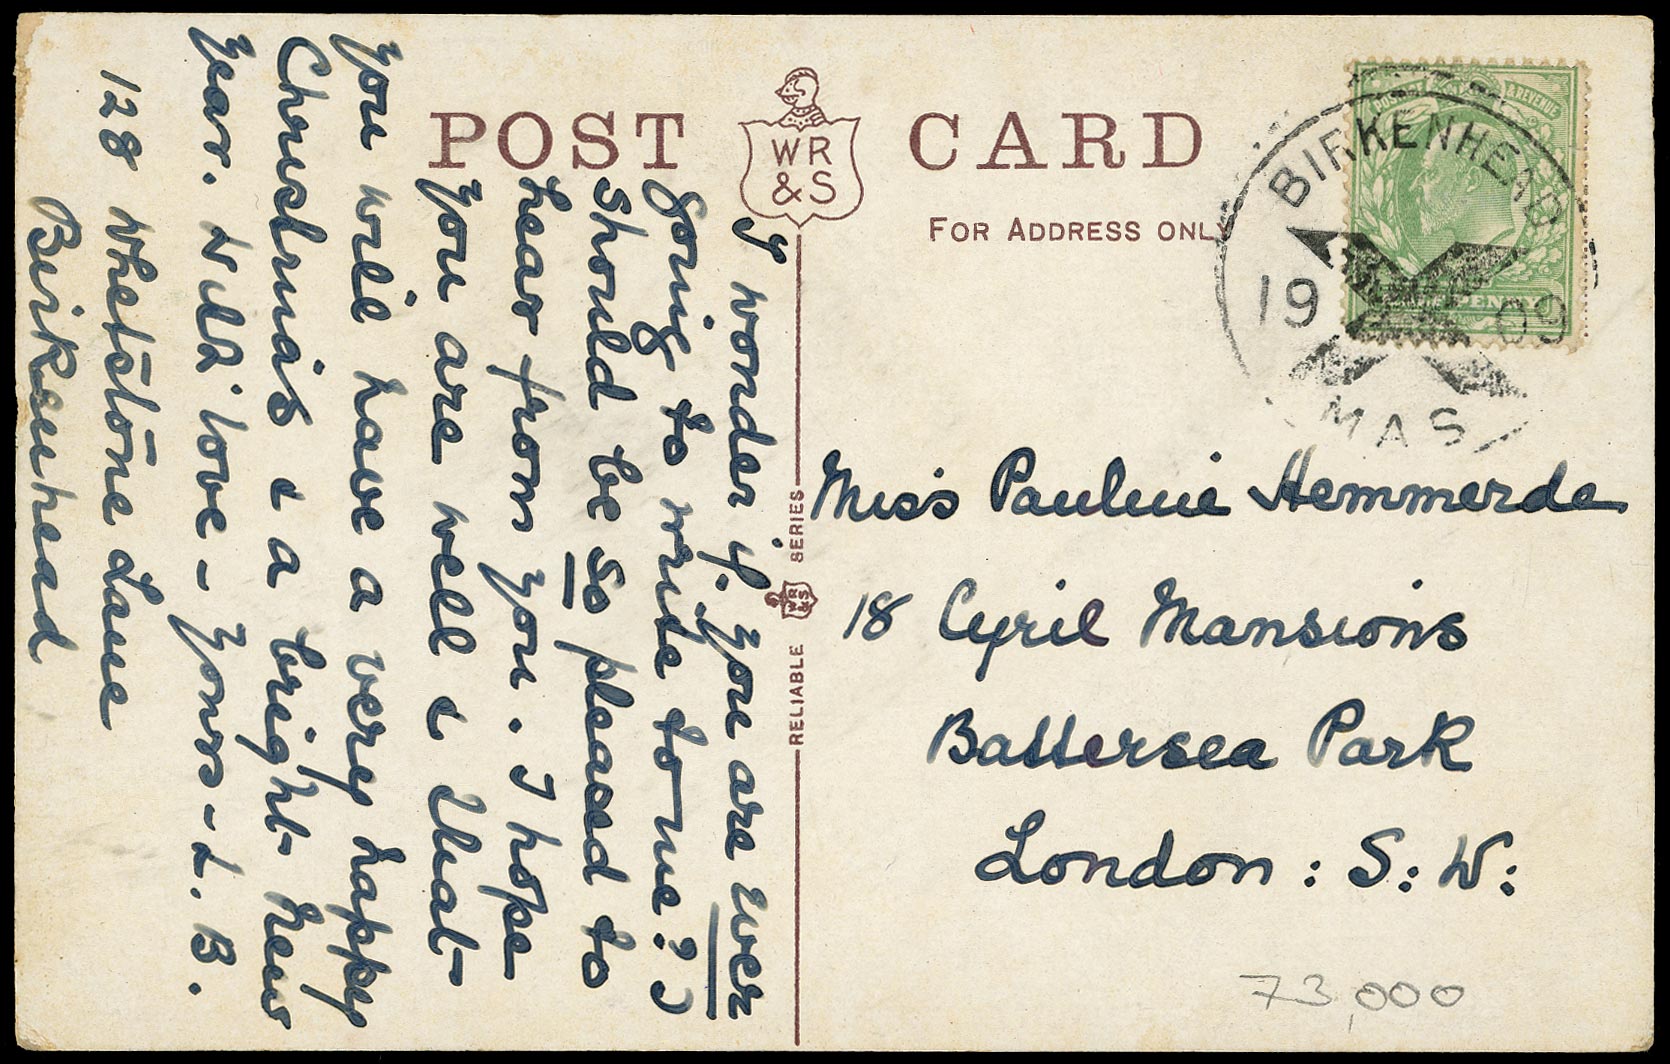 POST CARD
WR
&S
FOR ADDRESS ONLY
POSTAGE & REVENUE
PENNY
BIRKENHEAD
19 09
MAS
I wonder if you are ever
going to write to me? I
should be so pleased to
hear from you. I hope
you are well & that
you will have a very happy
Christmas & a bright New
Year. With love - Yours - L. B.
128 Whetstone Lane
Birkenhead
RELIABLE WR&S SERIES
Miss Pauline Hemmerde
18 Cyril Mansions
Battersea Park
London: S: W:
73,000